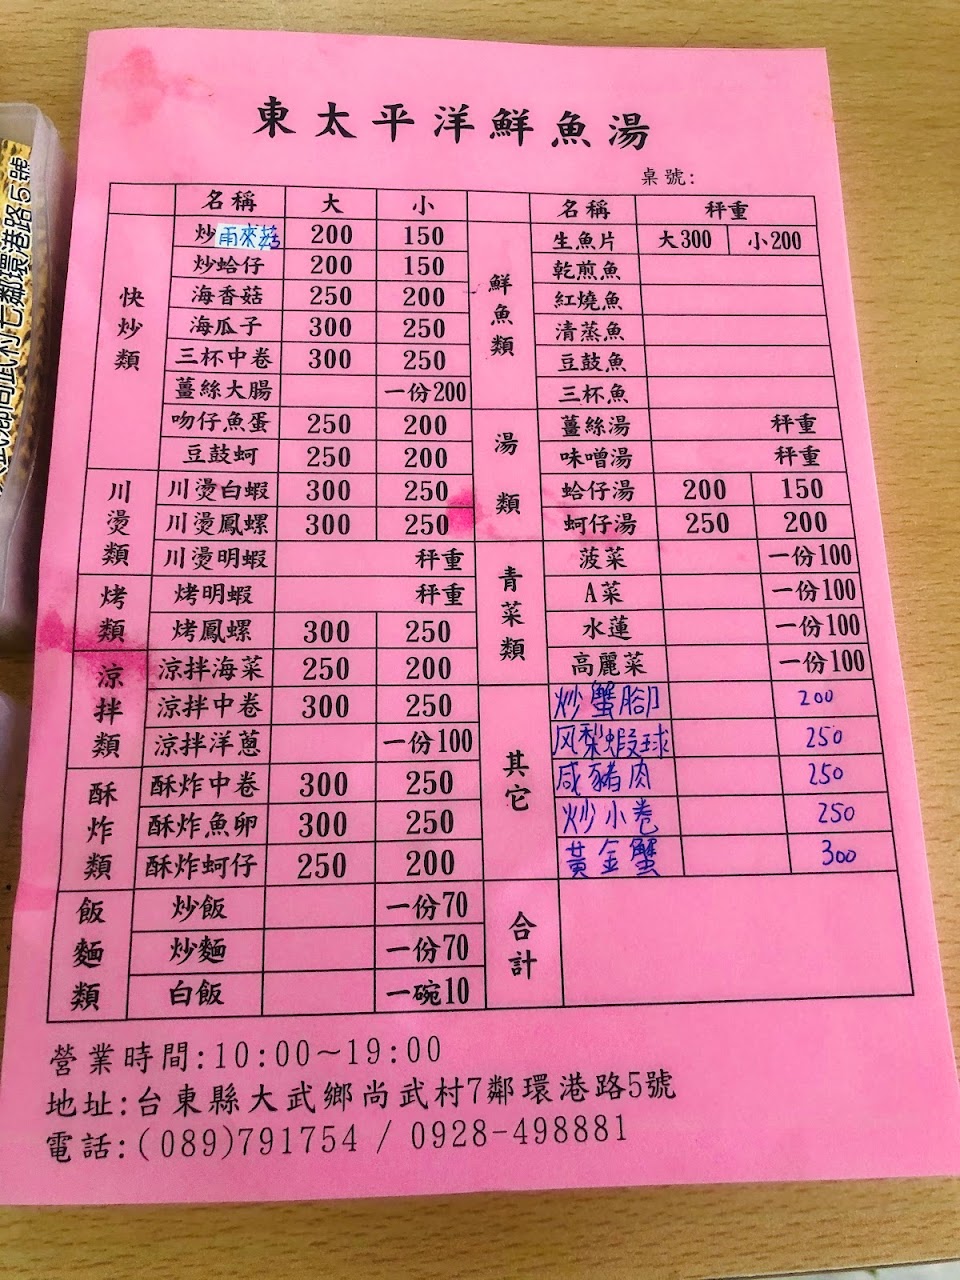 東太平洋鮮魚湯
桌號:
名稱 大 小
快炒類
炒雨來菇 200 150
炒蛤仔 200 150
海香菇 250 200
海瓜子 300 250
三杯中卷 300 250
薑絲大腸 一份200
吻仔魚蛋 250 200
豆鼓蚵 250 200
川燙類
川燙白蝦 300 250
川燙鳳螺 300 250
川燙明蝦 秤重
烤類
烤明蝦 秤重
烤鳳螺 300 250
涼拌類
涼拌海菜 250 200
涼拌中卷 300 250
涼拌洋蔥 一份100
酥炸類
酥炸中卷 300 250
酥炸魚卵 300 250
酥炸蚵仔 250 200
飯麵類
炒飯 一份70
炒麵 一份70
白飯 一碗10
名稱 秤重
鮮魚類
生魚片 大300 小200
乾煎魚
紅燒魚
清蒸魚
豆鼓魚
三杯魚
湯類
薑絲湯 秤重
味噌湯 秤重
蛤仔湯 200 150
蚵仔湯 250 200
青菜類
菠菜 一份100
A菜 一份100
水蓮 一份100
高麗菜 一份100
其它
炒蟹腳 200
风梨蝦球 250
咸豬肉 250
炒小卷 250
黃金蟹 300
合計
營業時間:10:00~19:00
地址:台東縣大武鄉尚武村7鄰環港路5號
電話:(089)791754 / 0928-498881
尚武村七鄰環港路5號